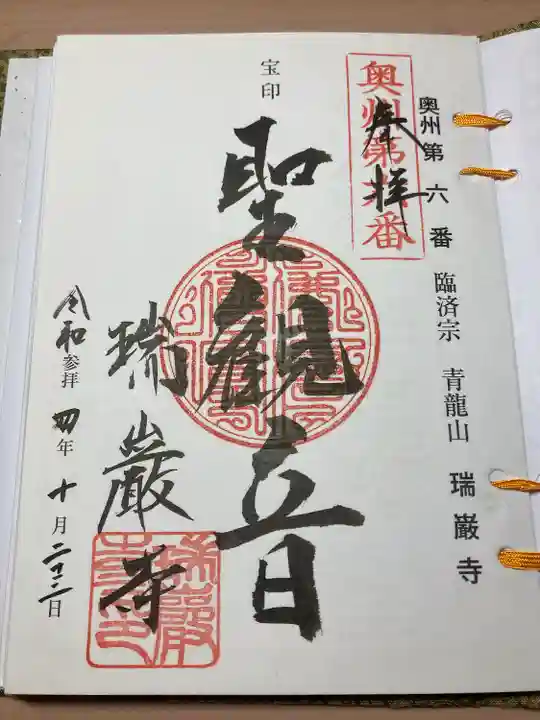 奥州第六番 臨済宗 青龍山 瑞巌寺
奥州第六番
奉拝
宝印
聖観音
瑞巌寺
令和四年十月二十二日
参拝